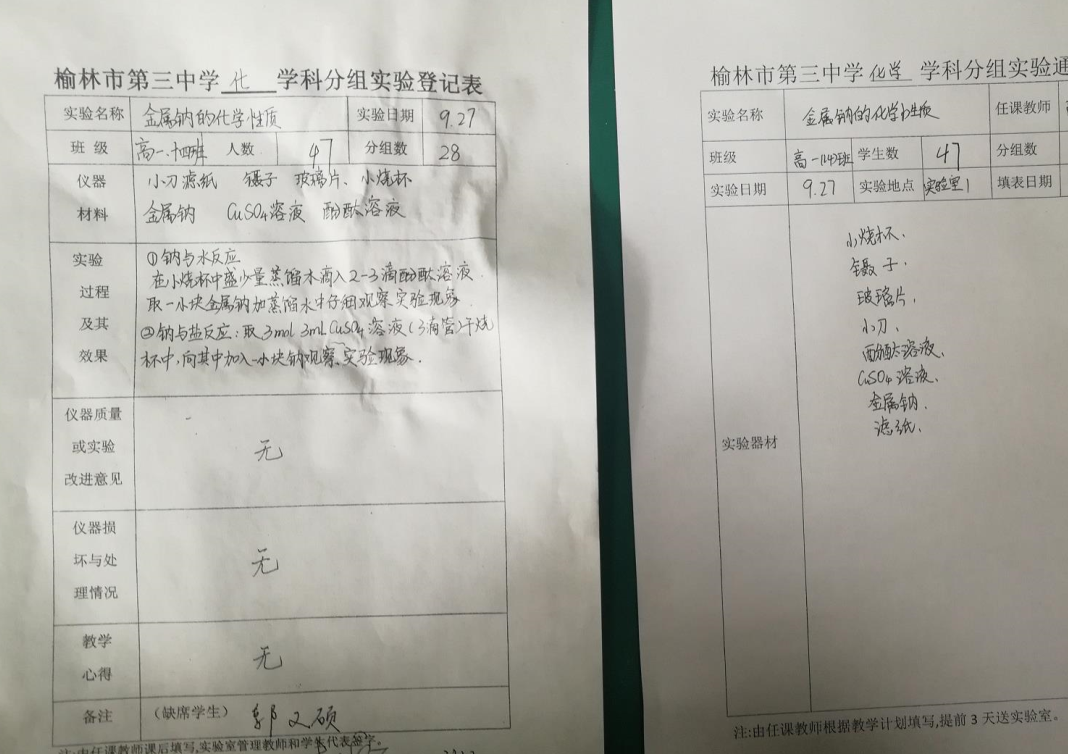 榆林市第三中学 化 学科分组实验登记表
实验名称 金属钠的化学性质 实验日期 9.27
班 级 高一.十四班 人数 47 分组数 28
仪器 小刀 滤纸 镊子 玻璃片、小烧杯
材料 金属钠 CuSO4溶液 酚酞溶液
实验 ①钠与水反应
过程 在小烧杯中盛少量蒸馏水滴入2-3滴酚酞溶液.
取一小块金属钠加蒸馏水中仔细观察实验现象.
及其 ②钠与盐反应:取3mol 3mL CuSO4溶液(3滴管)于烧
效果 杯中,向其中加入一小块钠观察、实验现象.
仪器质量
或实验 无
改进意见
仪器损
坏与处 无
理情况
教学
心得 无
备注 (缺席学生) 郭文硕
注:由任课教师课后填写,实验室管理教师和学生代表签字。
榆林市第三中学 化学 学科分组实验通
实验名称 金属钠的化学性质 任课教师
班级 高一(14)班 学生数 47 分组数
实验日期 9.27 实验地点 实验室1 填表日期
小烧杯、
镊子、
玻璃片、
小刀、
酚酞溶液、
CuSO4溶液、
金属钠、
滤纸、
实验器材
注:由任课教师根据教学计划填写,提前 3 天送实验室。